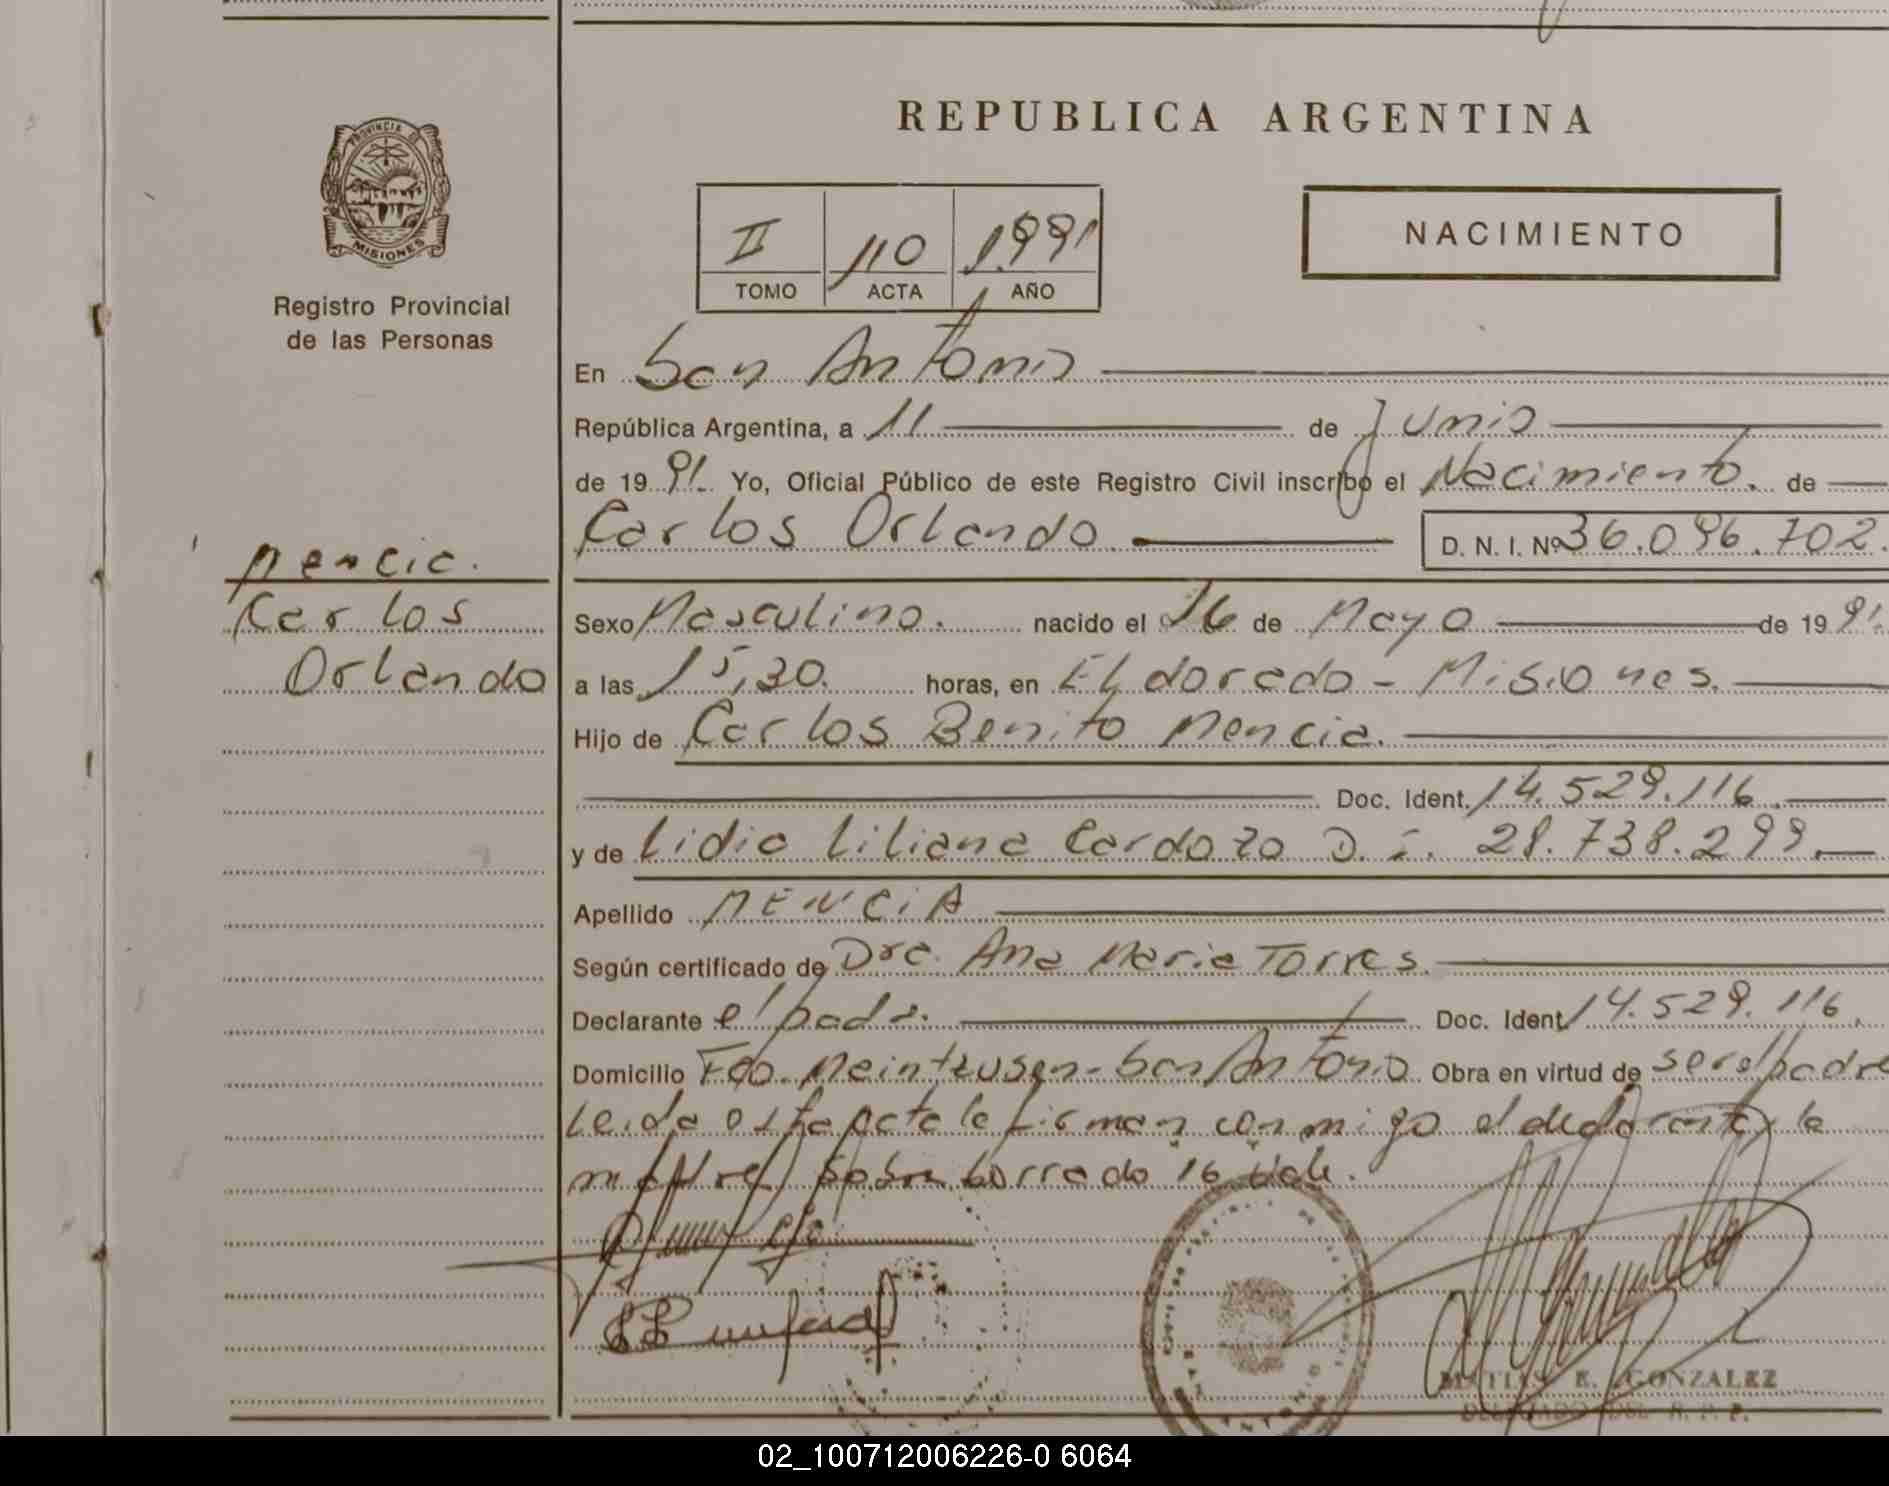 REPUBLICA ARGENTINA
PROVINCIA DE
MISIONES
Registro Provincial
de las Personas
II 110 1991
TOMO ACTA AÑO
NACIMIENTO
En San Antonio
República Argentina, a 11 de Junio
de 1991. Yo, Oficial Público de este Registro Civil inscribo el Nacimiento. de
Carlos Orlando D. N. I. Nº 36.096.702.
Mencia.
Carlos
Orlando
Sexo Masculino. nacido el 16 de Mayo de 1991.
a las 15,30. horas, en Eldorado - Misiones.
Hijo de Carlos Benito Mencia.
Doc. Ident. 14.529.116.
y de Lidia Liliana Cardozo D. I. 28.738.299.
Apellido MENCIA
Según certificado de Dra. Ana Maria Torres.
Declarante el padre. Doc. Ident. 14.529.116.
Domicilio Fdo. San Antonio Obra en virtud de ser el padre
Leida esta acta la firman conmigo el declarante y la
madre sobre borrado 16 vale.
MATIAS E. GONZALEZ
DELEGADO DEL R. P. P.
02_100712006226-0 6064